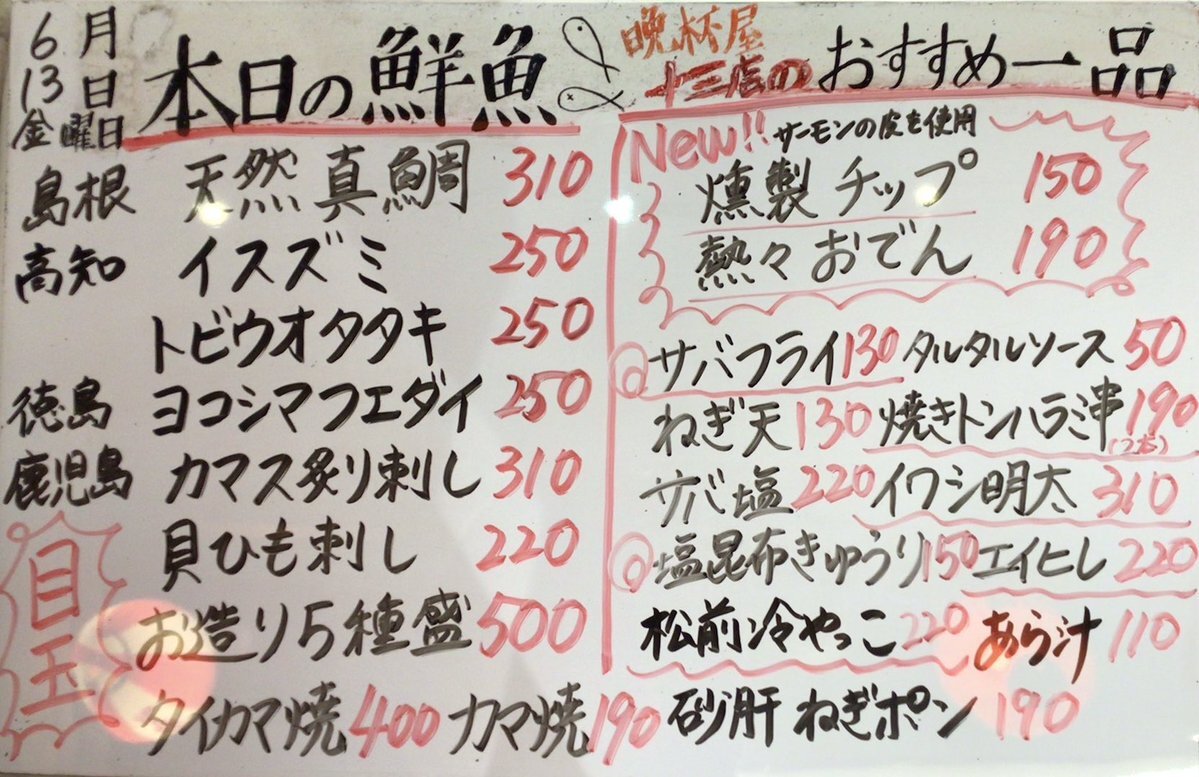 6月
13日
金曜日
本日の鮮魚
島根 天然真鯛 310
高知 イスズミ 250
トビウオタタキ 250
徳島 ヨコシマフエダイ 250
鹿児島 カマス炙り刺し 310
貝ひも刺し 220
目玉 お造り5種盛 500
タイカマ焼 400 カマ焼 190
晩杯屋
十三店のおすすめ一品
New!! サーモンの皮を使用
燻製チップ 150
熱々おでん 190
◎サバフライ 130 タルタルソース 50
ねぎ天 130 焼きトンハラミ串 190
(2本)
サバ塩 220 イワシ明太 310
◎塩昆布きゅうり 150 エイヒレ 220
松前冷やっこ 220 あら汁 110
砂肝ねぎポン 190